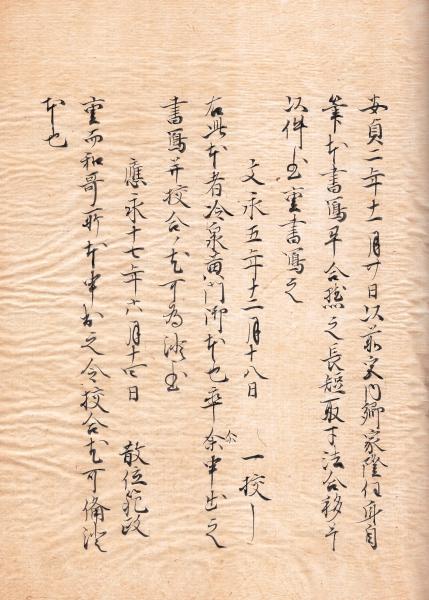 安貞二年十一月廿日以前宮内卿家隆位身自
筆本書寫早合點之長短取寸法合移之
以件本重書寫之
文永五年十二月十八日 一校了
右此本者冷泉黄門御本也卒尓申出之
書寫并校合了尤可為證本
應永十七年六月十四日 散位範政
重而和哥所本申出之令校合尤可備證
本也